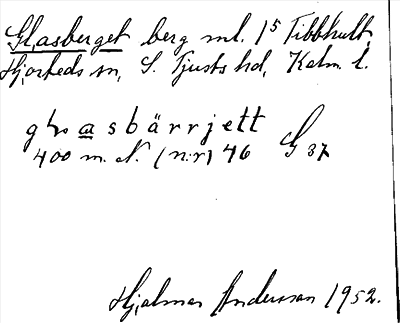 Glasberget berg ml. 1⁵ Tibbhult
Hjorteds sn, S. Tjusts hd, Kalm. l.
glɔasbärrjett
400 m. N. (n:r) 46 G 37
Hjalmar Andersson 1952.